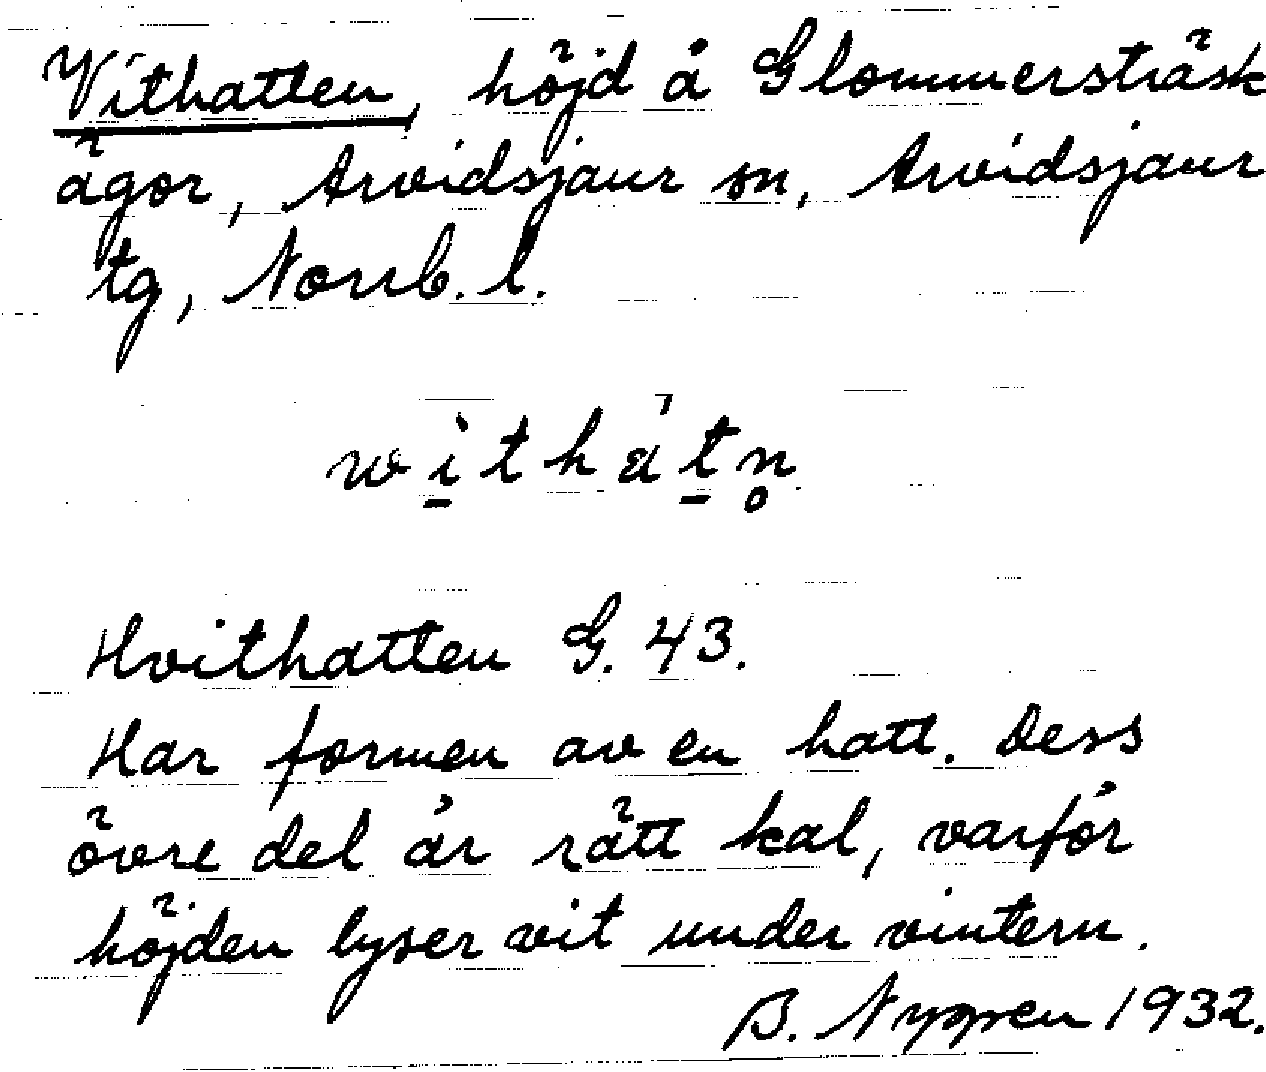 Vithatten, höjd å Glommersträsk
ägor, Arvidsjaur sn, Arvidsjaur
tg, Norrb. l.
wìthátn̥
Hvithatten G. 43.
Har formen av en hatt. Dess
övre del är rätt kal, varför
höjden lyser vit under vintern.
B. Nyppen 1932.